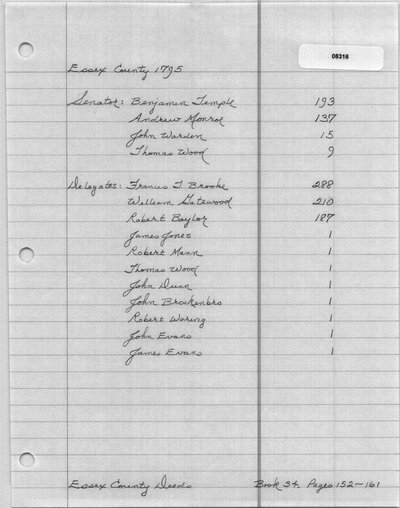 08316
Essex County 1795
Senator: Benjamin Temple 193
Andrew Monroe 137
John Warden 15
Thomas Wood 9
Delegates: Francis T. Brooke 288
William Gatewood 210
Robert Baylor 187
James Jones 1
Robert Mann 1
Thomas Wood 1
John Dunn 1
John Brockenbro 1
Robert Waring 1
John Evans 1
James Evans 1
Essex County Deeds Book 34, Pages 152-161